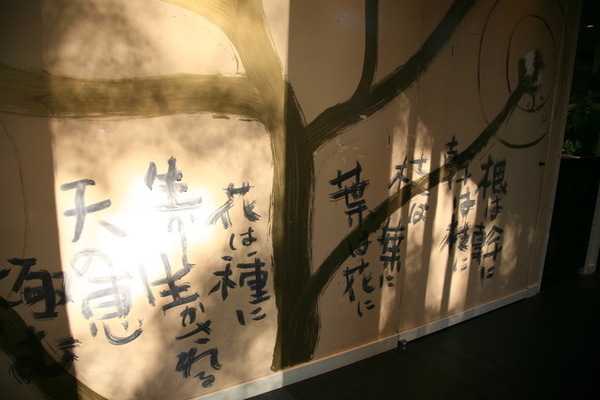 根は幹に
幹は枝に
枝は葉に
葉は花に
花は種に
生 生かされる
天の恵
極